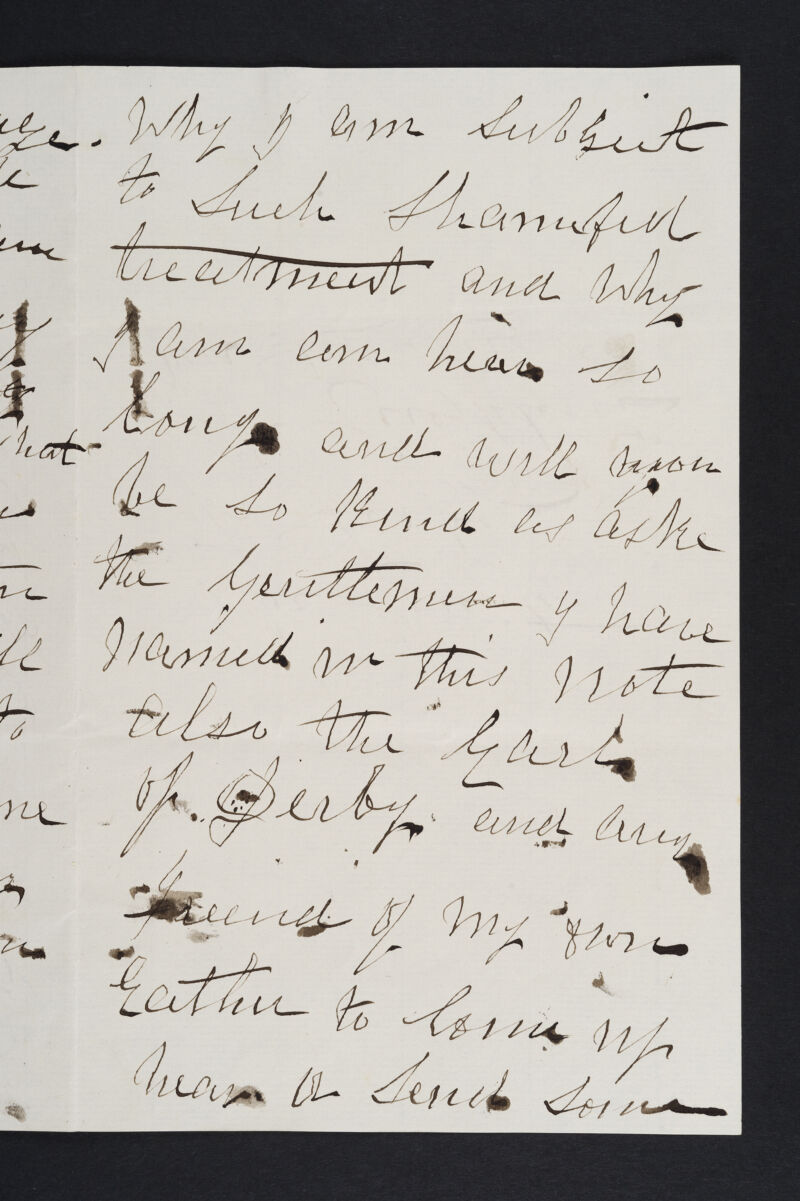 Why I am subgect
to such shameful
treatment and why
I am am hear so
long and will you
be so kind as aske
the gentlemen I have
named in this note
also the Earl
of Derby and any
freend of my own
Eather to come up
hear or send some